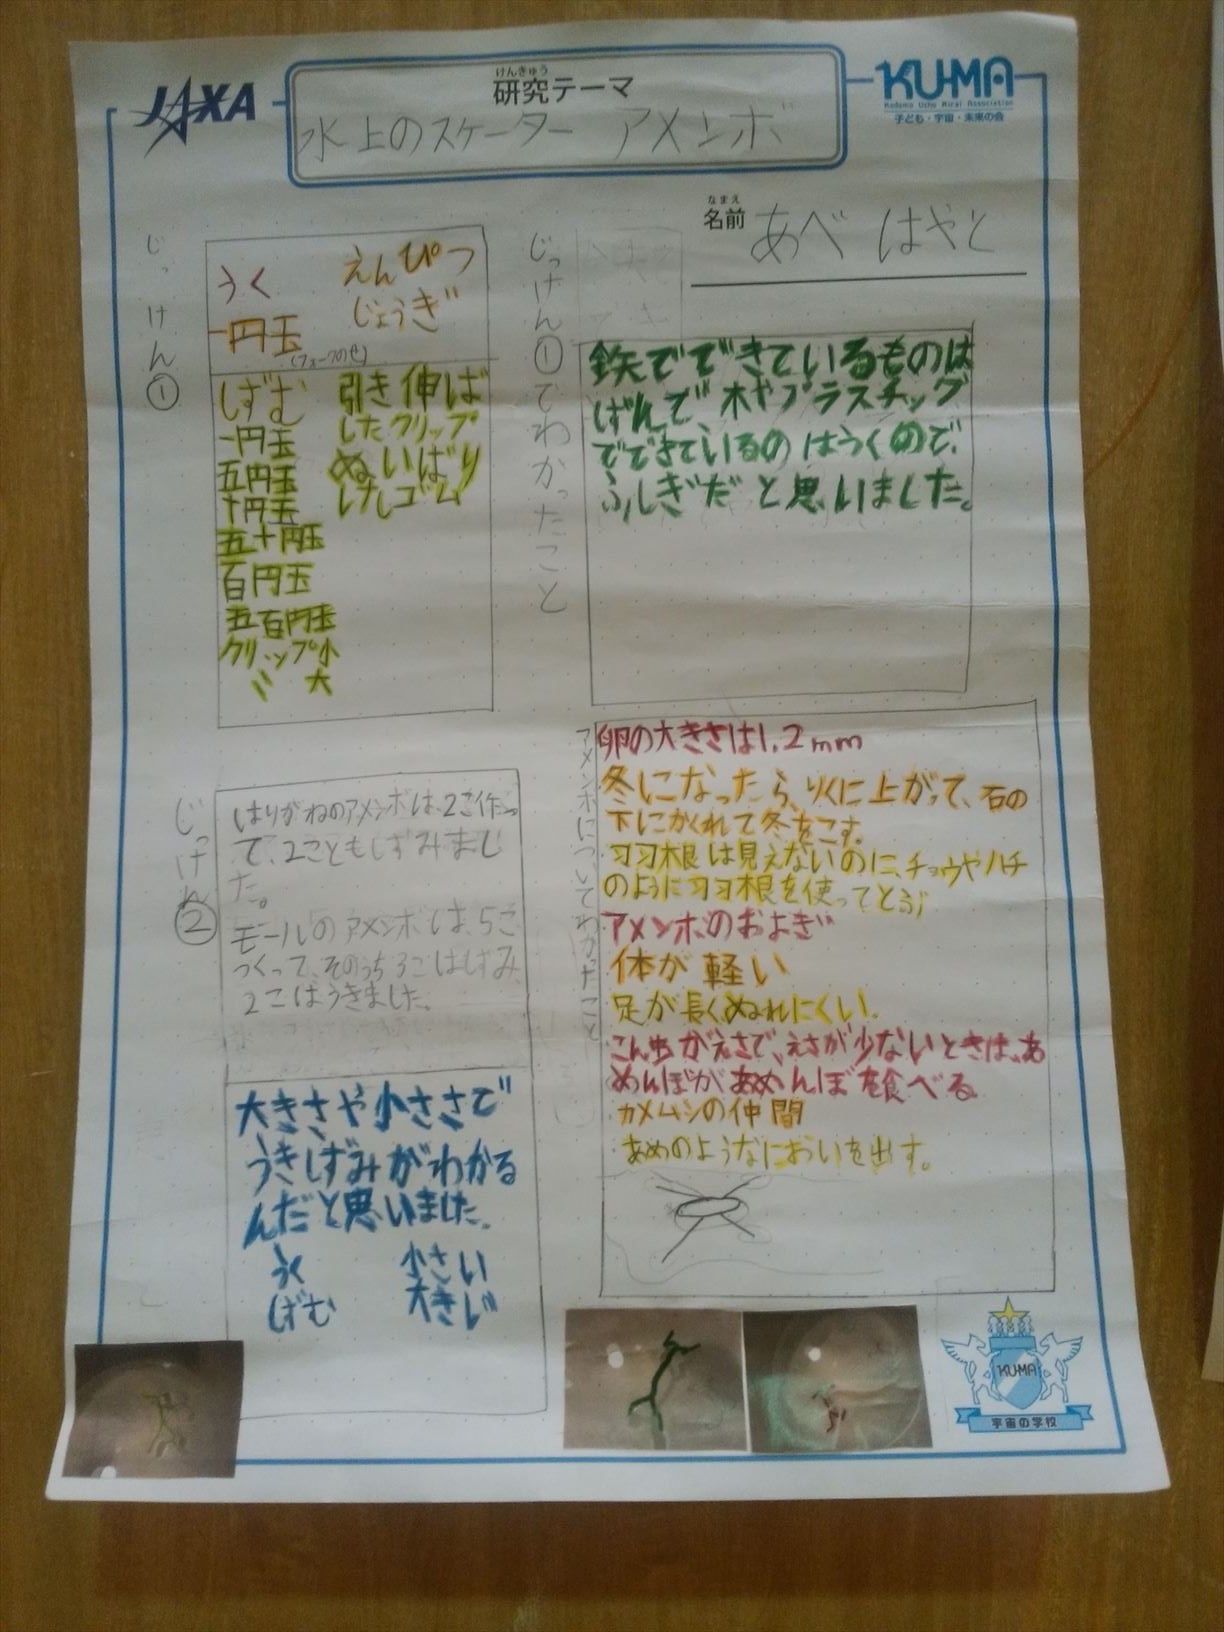 JAXA
けんきゅう
研究テーマ
水上のスケーター アメンボ
KU-MA
Kodomo Uchu Mirai Association
子ども・宇宙・未来の会
なまえ
名前 あべ はやと
じっけん①
うく
一円玉
(フォークのせ)
えんぴつ
じょうぎ
しずむ
一円玉
五円玉
十円玉
五十円玉
百円玉
五百円玉
クリップ小
〃 大
引き伸ば
したクリップ
ぬいばり
けしゴム
じっけん①でわかったこと
鉄でできているものは
しずんで、木やプラスチック
でできているのはうくので、
ふしぎだと思いました。
じっけん②
はりがねのアメンボは、2こ作っ
て、2こともしずみまし
た。
モールのアメンボは、5こ
つくって、そのうち3こはしずみ
2こはうきました。
大きさや小ささで
うきしずみがわかる
んだと思いました。
うく 小さい
しずむ 大きい
アメンボについてわかったこと
卵の大きさは1.2mm
冬になったら、りくに上がって、石の
下にかくれて冬をこす。
羽根は見えないのに、チョウやハチ
のように羽根を使ってとぶ
アメンボのおよぎ
体が軽い
足が長くぬれにくい。
こん虫がえさで、えさが少ないときは、あ
めんぼがあめんぼを食べる
カメムシの仲間
あめのようなにおいを出す。
KU-MA
宇宙の学校